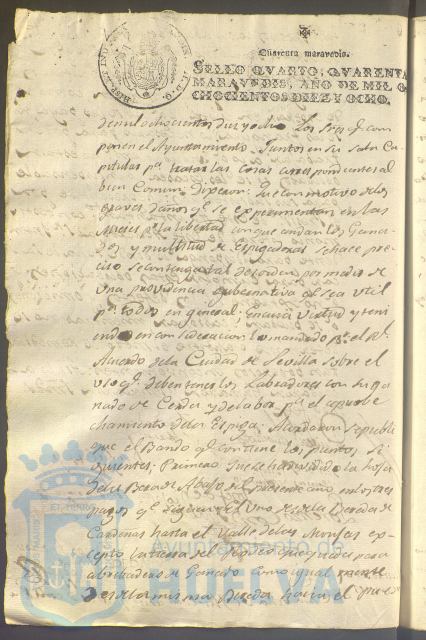 Quarenta maravedis.
SELLO QVARTO, QVARENTA
MARAVEDIS, AÑO DE MIL O
CHOCIENTOS DIEZ Y OCHO.
de mil ochocientos diez y ocho Los Sres qe com
ponen el Ayuntamiento, Juntos en su Sala Ca
pitular pa tratar las Cosas correspondientes al
bien Comun, Dixeron: Que con motivo de los
graves daños qe se experimentan en las
Mieses pr la libertad con que andan los Gana
dos, y multitud de Espigadoras se hace pre
ciso se contenga tal desorden por medio de
una providencia gubernativa qe sea util
pa todos en general; En cuia virtud y teni
endo en consideracion lo mandado pr el Rl
Acuerdo de la Ciudad de Sevilla sobre el
uso qe deben tener los Labradores con su ga
nado de Cerda, y de labor pa el aprobe
chamiento de las Espigas; Acordaron se publi
que el Bando qe contiene los puntos Si
guientes; Primero Que
de Abajo del presente año, en los tres
pagos qe Siguen: el Uno desde la Vereda de
Cardenas hasta el Valle de las Monjas ex
cepto la tierra del
abrebaderos de Ganado como igual mente
desde la misma Vereda hacia el
AYUNTAMIENTO DE
HUELVA